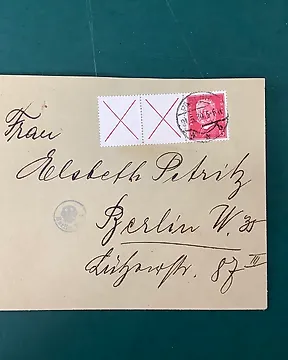 Frau
Elsbeth Petritz
Berlin W. 30
Lützowstr. 87 III